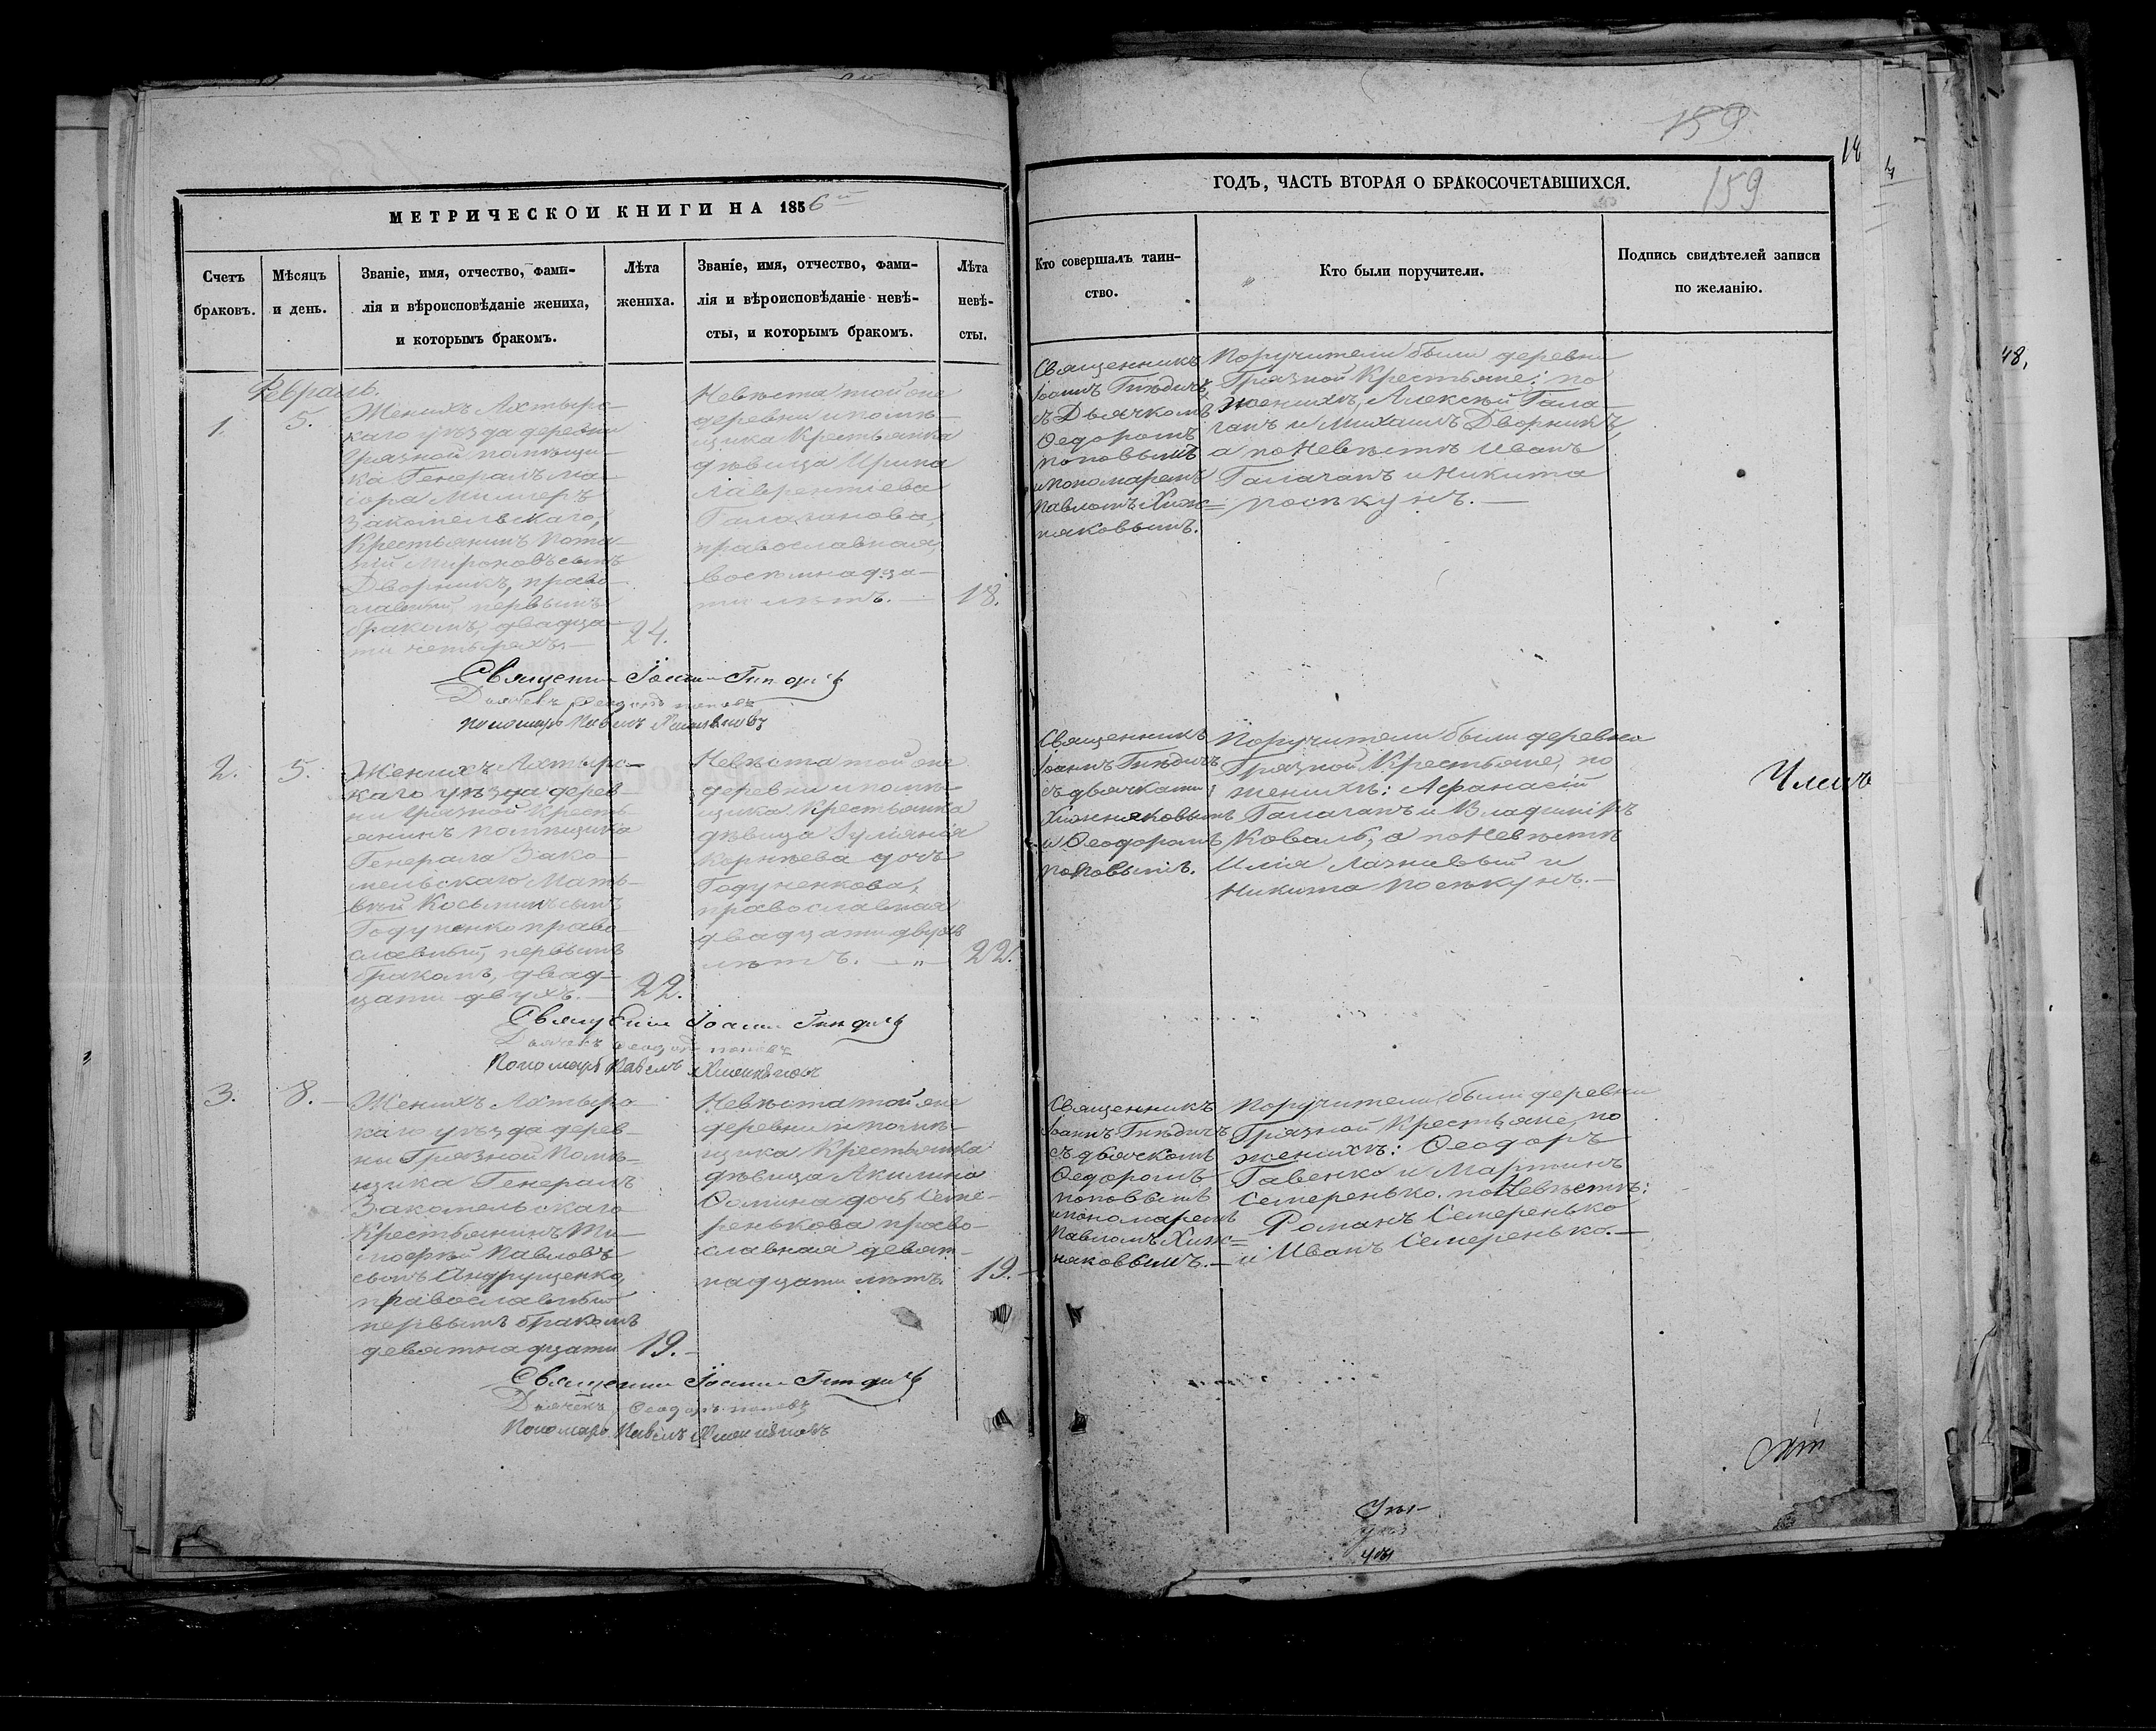 159.
18
МЕТРИЧЕСКОИ КНИГИ НА 1856й
Счетъ
браковъ.
Мѣсяцъ
и день.
Званіе, имя, отчество, фами-
лія и вѣроисповѣданіе жениха,
и которымъ бракомъ.
Лѣта
жениха.
Званіе, имя, отчество, фами-
лія и вѣроисповѣданіе невѣ-
сты, и которымъ бракомъ.
Лѣта
невѣ-
сты.
Февраль.
1.
5.
Женихъ Ахтырс-
каго уѣзда деревни
Грязной помѣщи-
ка Генералъ ма-
іора Миллеръ
Закомельскаго,
Крестьянинъ Пота-
пій Мироновъ сынъ
Дворникъ, право-
славный, первымъ
бракомъ, двадца-
ти четырехъ.—
24.
Невѣста той же
деревни и помѣ-
щика Крестьянка
дѣвица Ирина
Лаврентіева
Галаганова,
православная,
восемнадца-
ти лѣтъ.—
18.
Священникъ Іоаннъ Гнѣдичъ
Дьячекъ Ѳеодоръ Поповъ
Пономарь Павелъ Хижняковъ
2.
5.
Женихъ Ахтырс-
каго уѣзда дерев-
ни Грязной Кресть-
янинъ помѣщика
Генерала Зако-
мельскаго Мат-
вѣй Косьминъ сынъ
Годуненко право-
славный, первымъ
бракомъ, двад-
цати двухъ.—
22.
Невѣста той же
деревни и помѣ-
щика Крестьянка
дѣвица Іуліанія
Корнѣева дочь
Годуненкова,
православная
двадцати двухъ
лѣтъ. —„—
22.
Священникъ Іоаннъ Гнѣдичъ
Дьячекъ Ѳеодоръ Поповъ
Пономарь Павелъ Хижняковъ
3.
8.—
Женихъ Ахтырс-
каго уѣзда дерев-
ни Грязной Помѣ-
щика Генералъ
Закомельскаго
Крестьянинъ Ти-
моѳей Павловъ
сынъ Андрущенко,
православный
первымъ бракомъ
девятнадцати
19.—
Невѣста той же
деревни и помѣ-
щика Крестьянка
дѣвица Акилина
Ѳомина дочь Семе-
ренькова право-
славная девят-
надцати лѣтъ.
19.—
Священникъ Іоаннъ Гнѣдичъ
Дьячекъ Ѳеодоръ Поповъ
Пономарь Павелъ Хижняковъ
ГОДЪ, ЧАСТЬ ВТОРАЯ О БРАКОСОЧЕТАВШИХСЯ.
159
Кто совершалъ таин-
ство.
Кто были поручители.
Подпись свидѣтелей записи
по желанію.
Священникъ
Іоаннъ Гнѣдичъ,
съ Дьячкомъ
Ѳедоромъ
Поповымъ
и пономаремъ
Павломъ Хиж=
няковымъ.
Поручители были деревни
Грязной Крестьяне: по
женихѣ, Алексѣй Гала-
ганъ и Михаилъ Дворникъ,
а по Невѣстѣ Иванъ
Галаганъ и Никита
Посѣкунъ.—
Священникъ
Іоаннъ Гнѣдичъ
съ дьячками:
Хижняковымъ
и Ѳеодоромъ
Поповымъ.
Поручители были деревни
Грязной Крестьяне, по
женихѣ: Аѳанасій
Галаганъ и Владиміръ
Коваль, а по Невѣстѣ
Илія Лазнивый и
Никита Посѣкунъ.—
Членъ
Священникъ
Іоаннъ Гнѣдичъ
съ дьячкомъ
Ѳедоромъ
Поповымъ
и пономаремъ
Павломъ Хиж=
няковымъ.—
Поручители были деревни
Грязной Крестьяне, по
женихѣ: Ѳеодоръ
Гавенко и Мартинъ
Семеренько. по Невѣстѣ:
Романъ Семеренько
и Иванъ Семеренько.—
48.